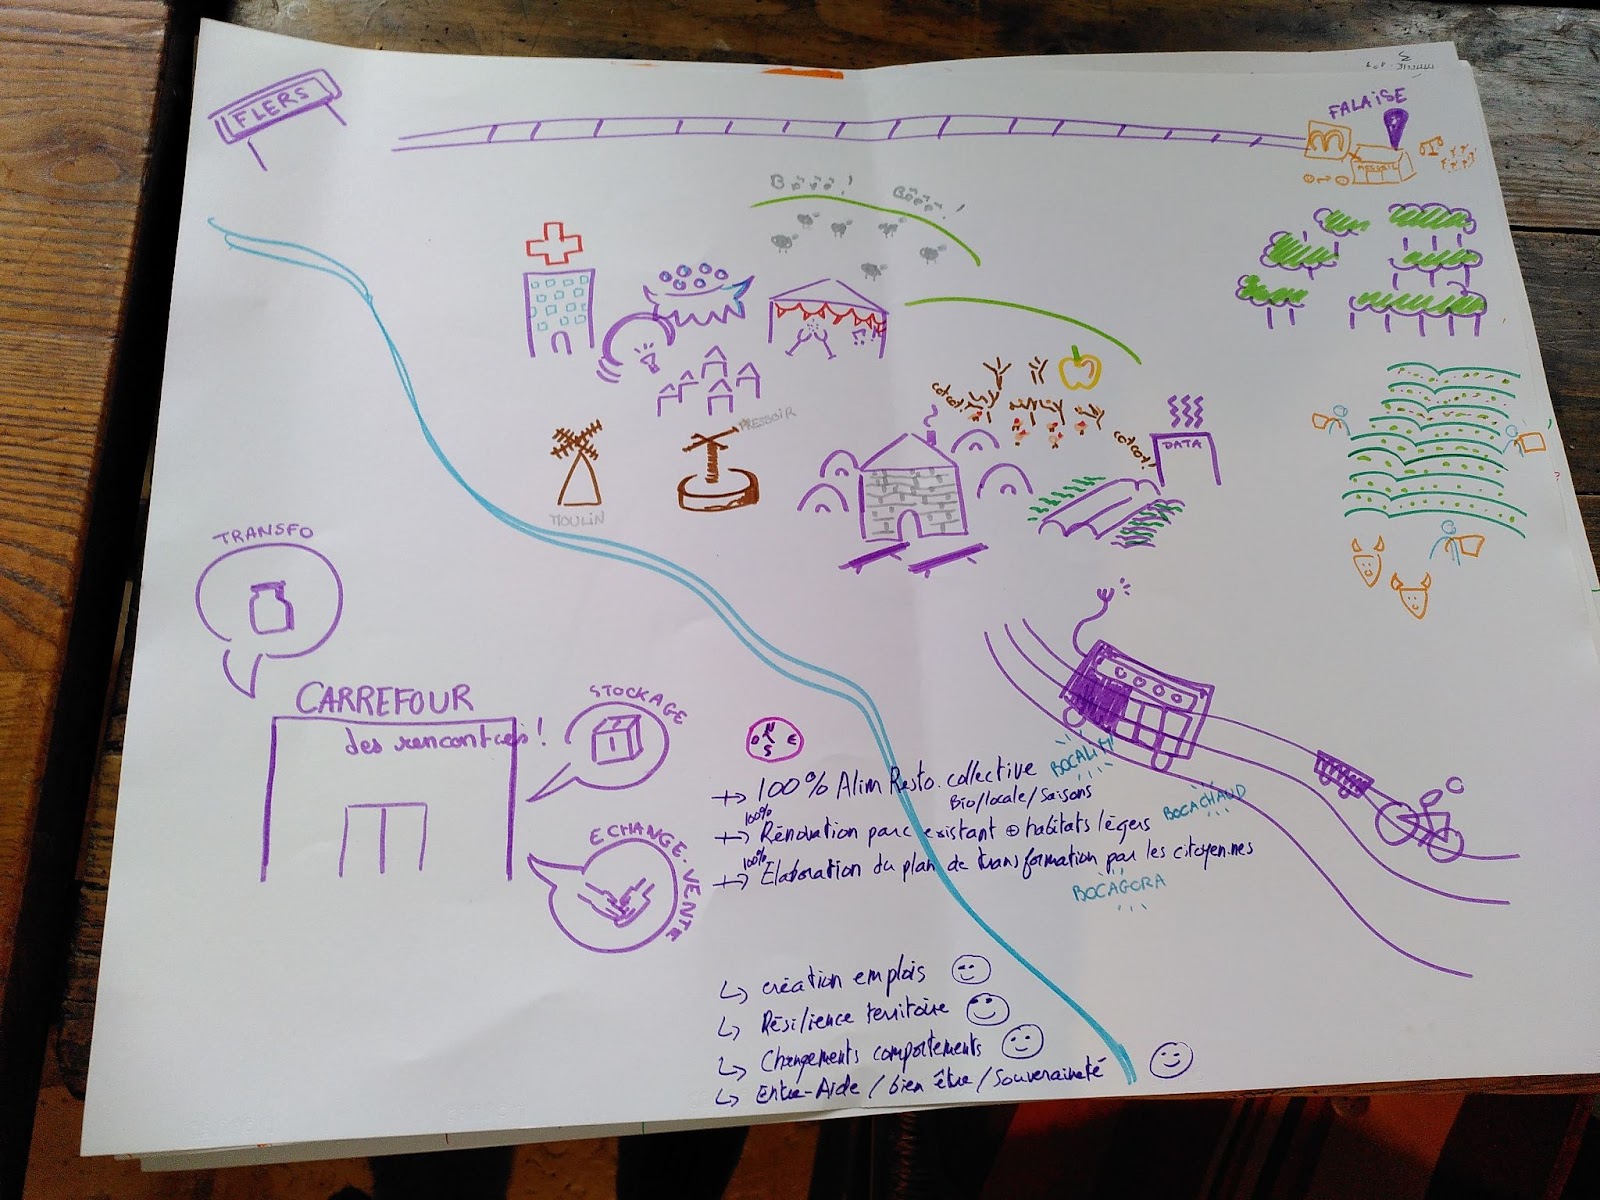 FLERS
FALAISE
Bêêê!
Bêêê!
PRESSOIR
cotcot!
cotcot!
DATA
MOULIN
TRANSFO
CARREFOUR
des rencontres!
STOCKAGE
ECHANGE-VENTE
N
O E
S
→ 100% Alim Resto. collective BOCALIM
Bio/locale/saisons
→ 100% Rénovation parc existant ⊕ habitats légers BOCACHAUD
→ 100% Elaboration du plan de transformation par les citoyen.nes
BOCAGORA
↳ création emplois
↳ Résilience territoire
↳ Changements comportements
↳ Entre-Aide / bien être / souveraineté